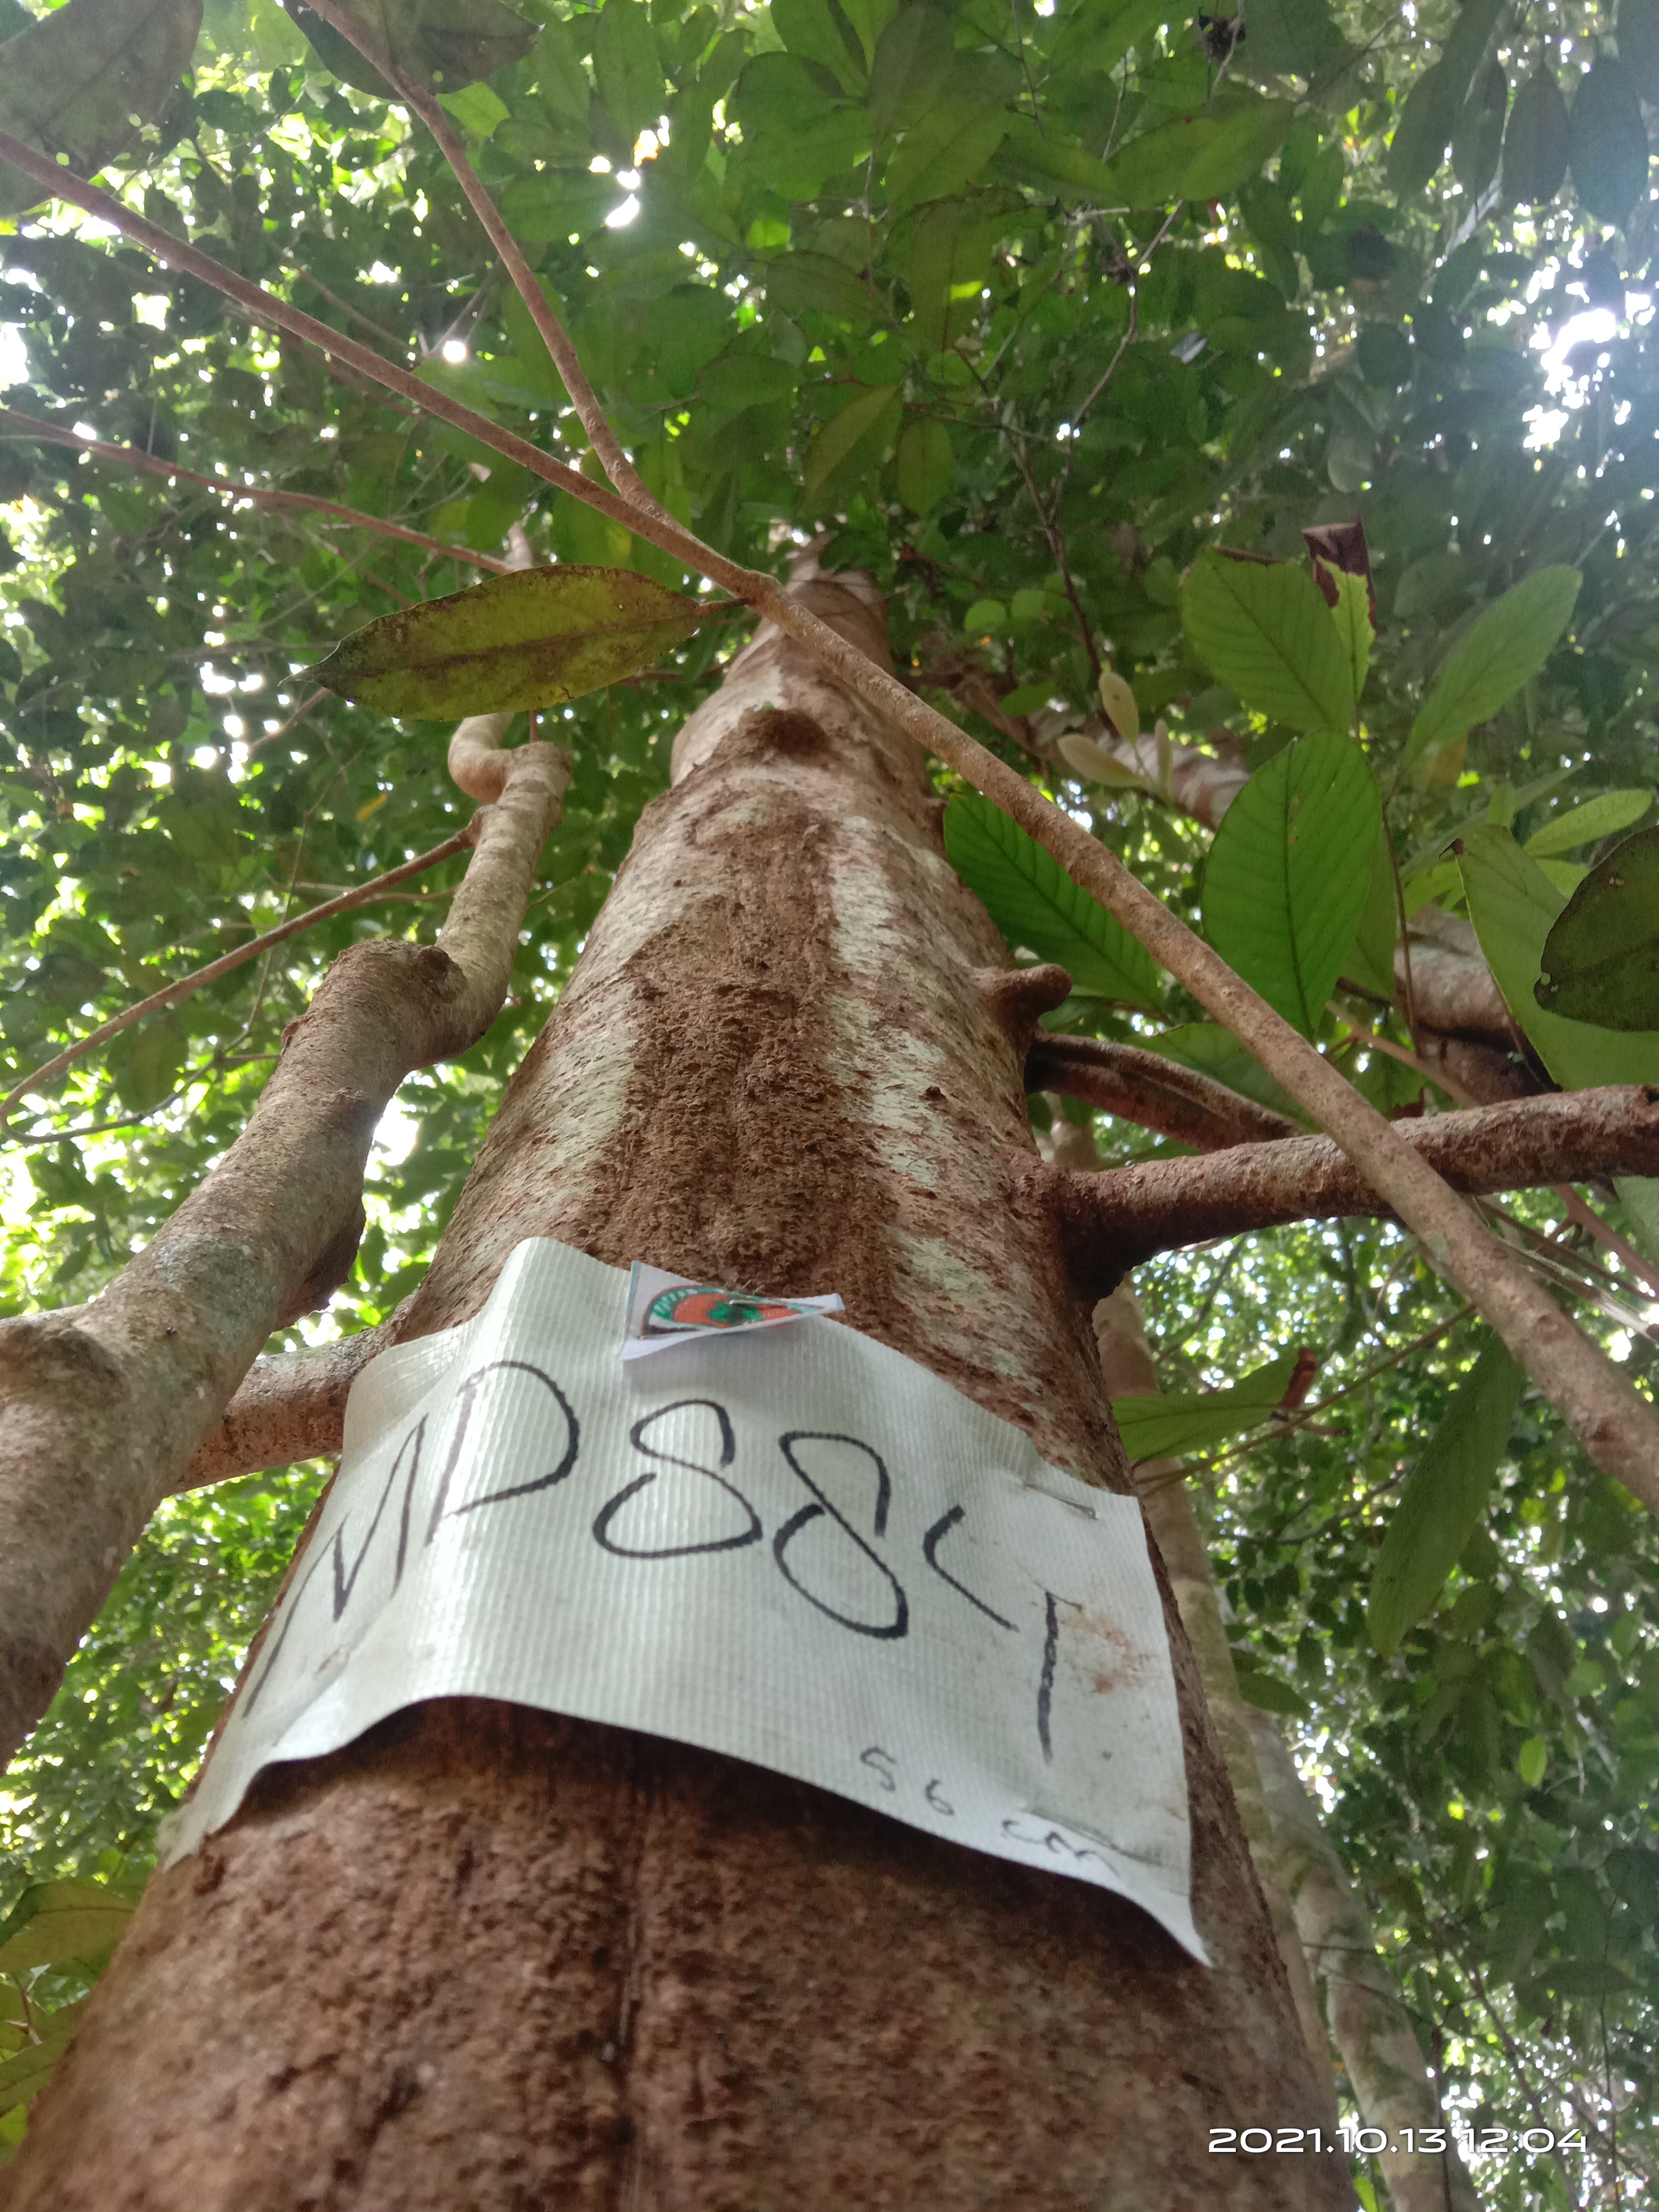 MD884
56 cm
2021.10.13 12:04